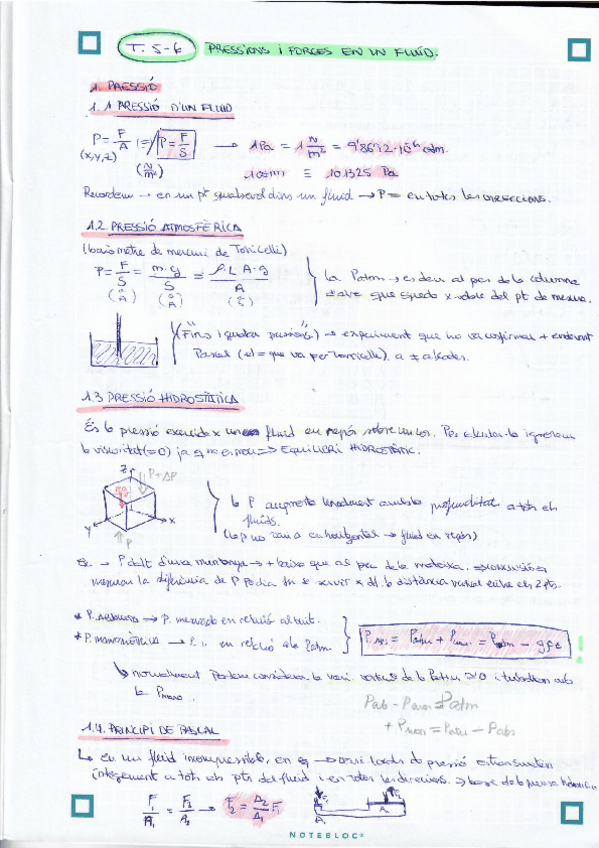 T. 5-6 PRESSIONS i FORCES EN UN FLUID.
1. PRESSIÓ
1.1 PRESSIÓ D'UN FLUID
P = F/A (=) P = F/S → 1 Pa = 1 N/m² = 9'8692·10⁻⁶ atm.
(x,y,z) (N/m²) 1 atm ≡ 101325 Pa
Recordem → en un pt qualsevol dins un fluid → P = en totes les direccions.
1.2. PRESSIÓ ATMOSFÈRICA
(baròmetre de mercuri de Torricelli)
P = F/S = m·g/S = ρ·L·A·g/A
la Patm → es deu al pes de la columna
d'aire que x sobre del pt de
(Fins igualar pressions) → experiment que no va confirmar + endavant
Pascal (el = que va fer Torricelli), a ≠ alçades.
1.3 PRESSIÓ HIDROSTÀTICA
És la pressió exercida x un fluid en repós sobre un cos. Per calcular-la ignorem
la viscositat (=0) ja q no es mou => EQUILIBRI HIDROSTÀTIC.
z P+ΔP
mg
y x
P
la P augmenta linealment amb la profunditat a tots els
fluids.
(la p no varia en horitzontal → fluid en repòs)
Ex. → P dalt d'una muntanya → + baixa que al peu de la mateixa.
la diferència de P pot fer-se servir x la distància vertical entre els 2 pts.
* P. ABSOLUTA → P. mesurada en relació al buit.
* P. MANOMÈTRICA → P. " en relació a la Patm.
Pabs = Patm + Pman = Patm - gρz
normalment podem considerar la vari. vertical de la Patm ≈ 0 i treballar amb
la Pmano.
Pab - Pman = Patm
+ Pman = Patm - Pabs
1.4. PRINCIPI DE PASCAL
↳ en un fluid incompressible, en eq → variacions de pressió es transmeten
íntegrament a tots els pts del fluid i en totes les direccions. => base de la premsa hidràulica
F₁/A₁ = F₂/A₂ → F₂ = A₂/A₁ F₁
F₁
A₁ A₂
NOTEBLOC®